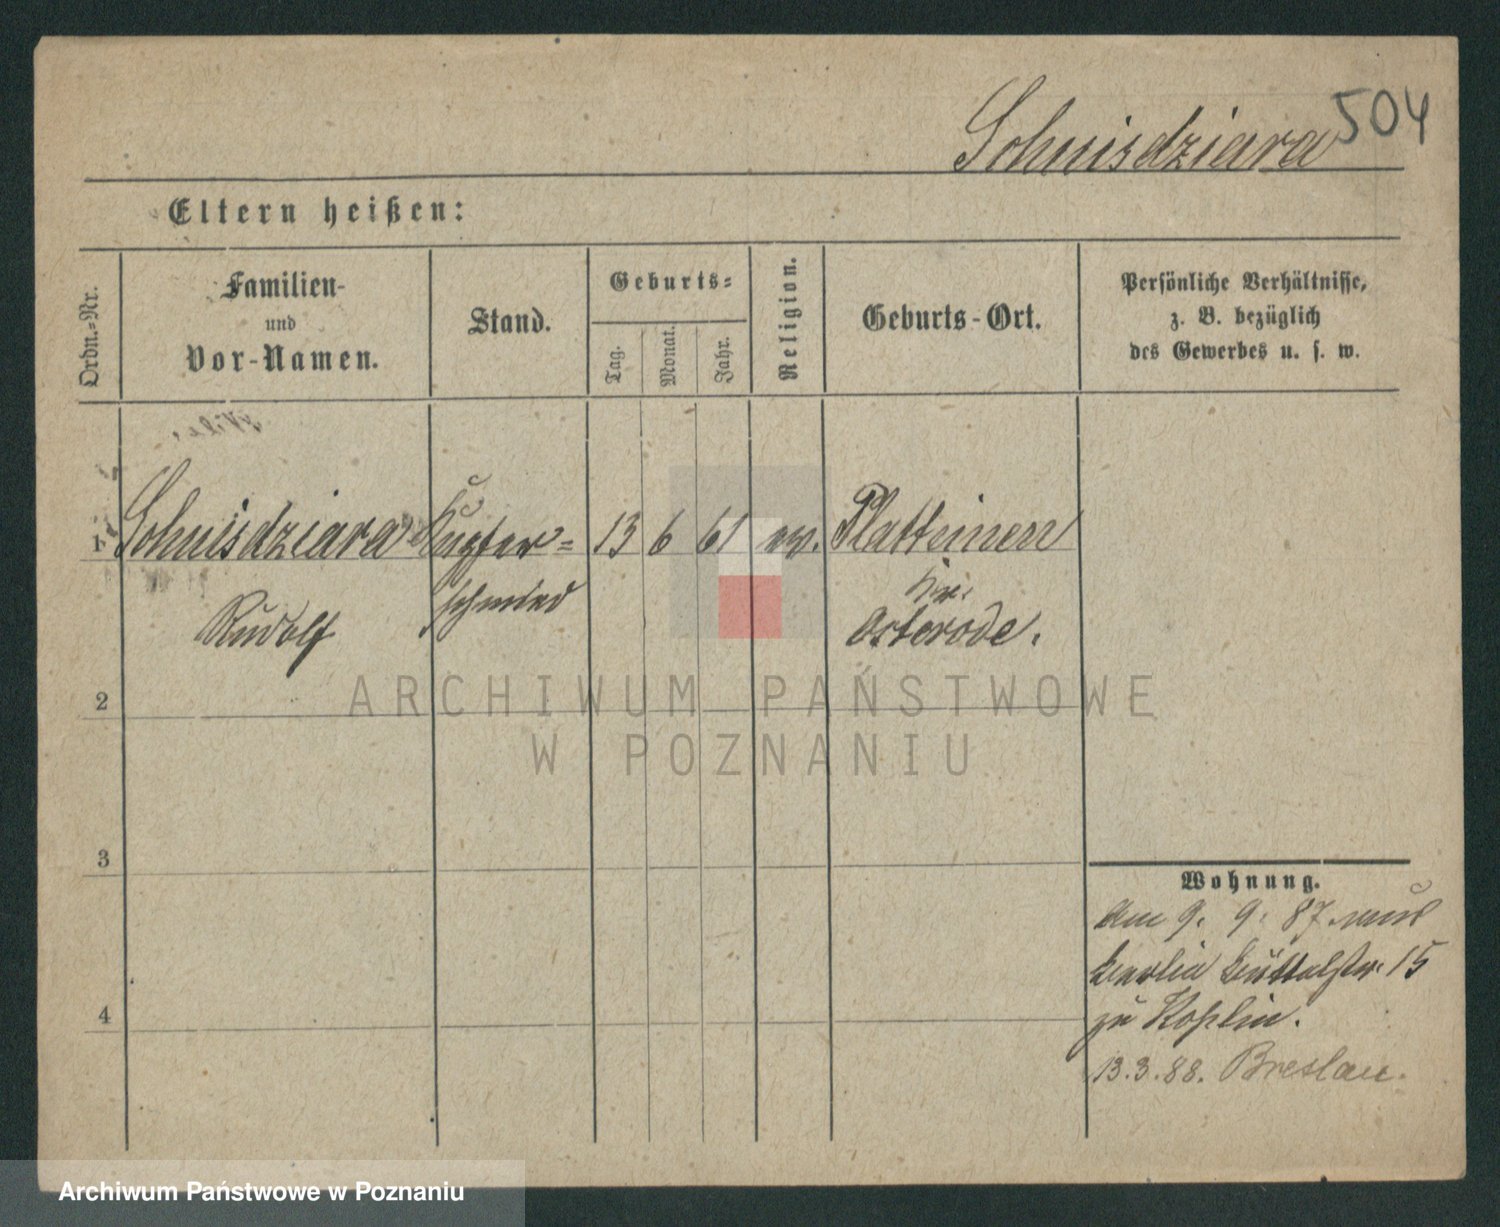 504
Schnisdziara
Eltern heißen:
Ordn.-Nr.
Familien-
und
Vor-Namen.
Stand.
Geburts-
Tag.
Monat.
Jahr.
Religion.
Geburts-Ort.
Persönliche Verhältnisse,
z. B. bezüglich
des Gewerbes u. s. w.
1 Schnisdziara Kupfer- 13 6 61 ev. Platteinen
Rudolf schmied Kr.
Osterode.
2
3
4
Wohnung.
Am 9. 9. 87. aus
Berlin 15
zu Koslin.
13.3.88. Breslau.
ARCHIWUM PAŃSTWOWE
W POZNANIU
Archiwum Państwowe w Poznaniu